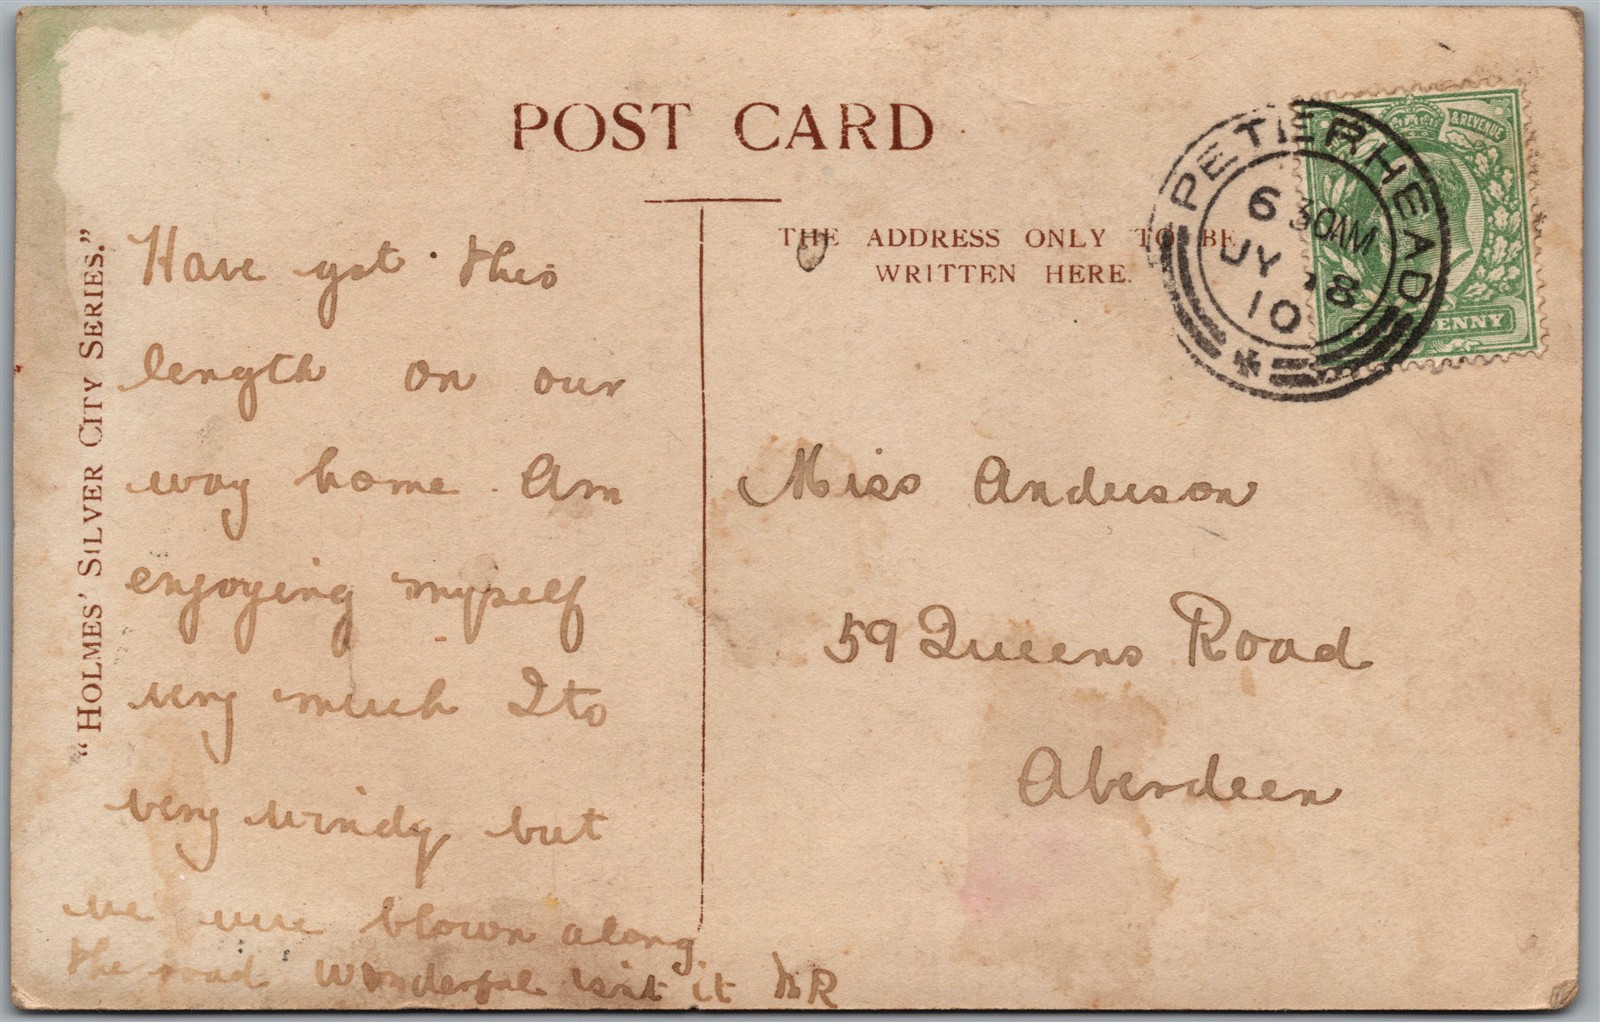 POST CARD
"HOLMES' SILVER CITY SERIES."
THE ADDRESS ONLY TO BE
WRITTEN HERE.
PETERHEAD
6 30AM
JY 18
10
& REVENUE
PENNY
Have got this
length on our
way home. Am
enjoying myself
very much Its
very windy but
we were blown along
the road wonderful isnt it
Miss Anderson
59 Queens Road
Aberdeen